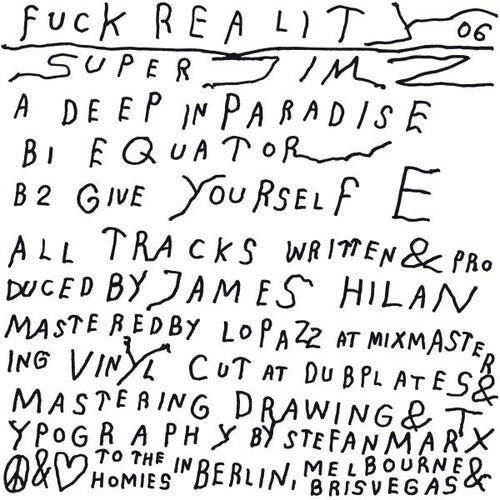 FUCK REALITY 06
SUPER JIMZ
A DEEP IN PARADISE
B1 EQUATOR
B2 GIVE YOURSELF E
ALL TRACKS WRITTEN & PRO
DUCED BY JAMES HILAN
MASTERED BY LOPAZZ AT MIXMASTER
ING VINYL CUT AT DUBPLATES &
MASTERING DRAWING & T
YPOGRAPHY BY STEFAN MARX
☮ & ♡ TO THE HOMIES IN BERLIN, MELBOURNE & BRISVEGAS &